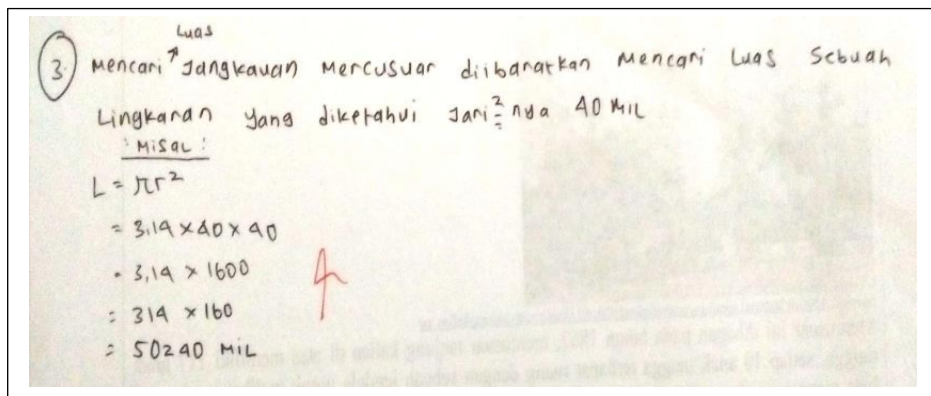 Luas
3. Mencari ↗ Jangkauan Mercusuar diibaratkan Mencari Luas Sebuah
Lingkaran yang diketahui Jari²nya 40 MIL
: Misal :
L = πr²
= 3,14 × 40 × 40
= 3,14 × 1600
= 314 × 160
= 50240 MIL
4